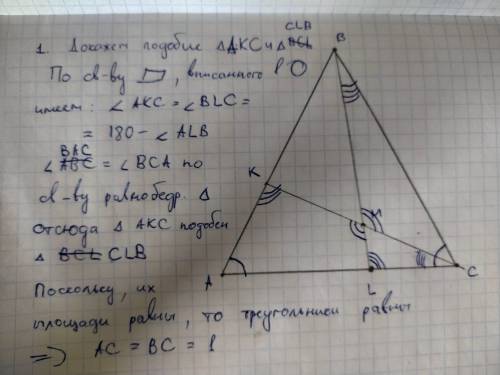 CLB
1. Докажем подобие △AKC и △B̶C̶L̶
По св-ву ▱, вписанного в O
имеем: ∠AKC = ∠BLC =
= 180 - ∠ALB
BAC
∠A̶B̶C̶ = ∠BCA по
св-ву равнобедр. △
отсюда △ AKC подобен
△ B̶C̶L̶ CLB
Поскольку, их
площади равны, то треугольники равны
=> AC = BC = 1
B
K
A
L
C